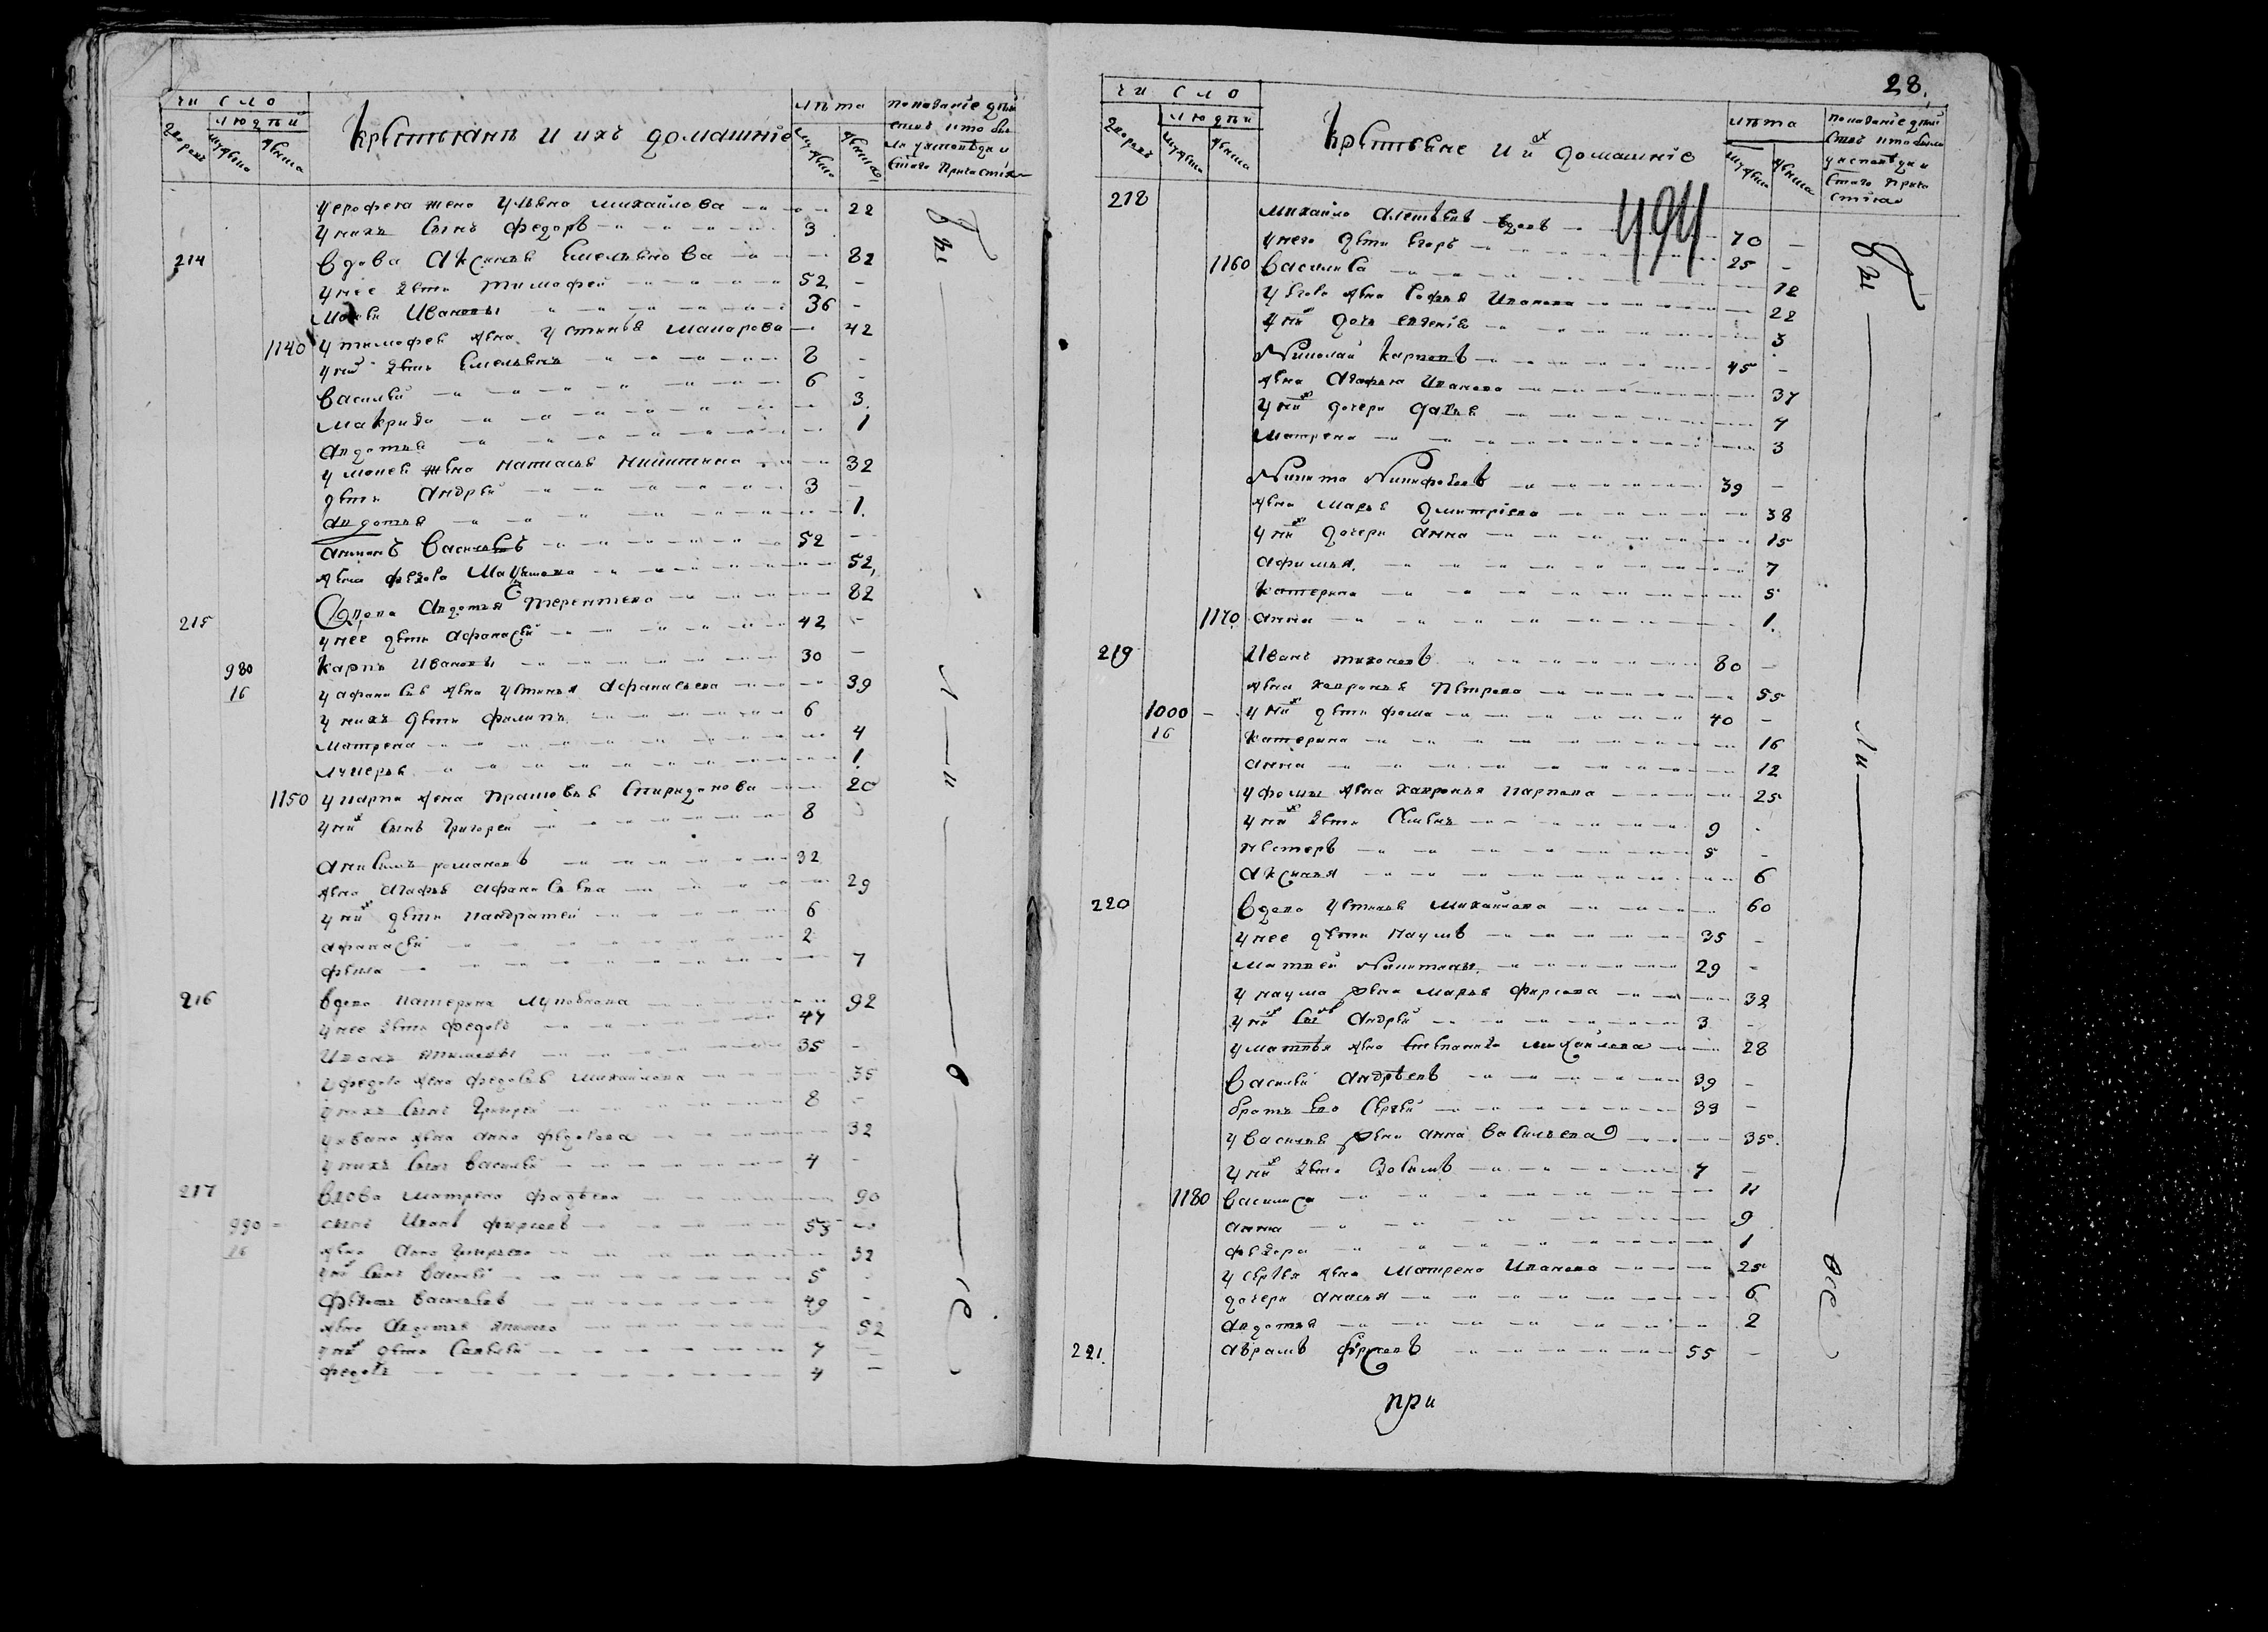 чи сло
людѣй
дворовъ
мужеска
женска
Крестьянѣ и ихъ домашніе
лѣта
мужеска
женска
показаніе дѣй
ствъ кто бы
ли у исповѣди и
святаго причастія
у ерофея жена ульяна михайлова 22
у нихъ сынъ федоръ 3
214 вдова Аксинья Емельянова 82
у нее дѣти тимофей 52
Ивановы 36
1140 у тимофея жена устинья макарова 42
у них дѣти Емельянъ 8
василей 6
макрида 3
авдотья 1
у жена настасья никитина 32
дѣти андрей 3
авдотья 1
васильевъ 52
жена 52
вдова авдотья терентьева 82
215 у нее дѣти афанасей 42
980 карпъ Ивановы 30
16 у афанасья жена устинья афанасьева 39
у нихъ дѣти филипъ 6
матрена 4
лукерья 1
1150 у карпа жена прасковья спиридонова 20
у них сынъ григорей 8
анисимъ романовъ 32
жена агафья афанасьева 29
у них дѣти кандратей 6
афанасей 2
фекла 7
216 вдова катерина 92
у нее дѣти федотъ 47
Иванъ 35
у федота жена федосья михайлова 35
у нихъ сынъ григорей 8
у ивана жена анна федотова 32
у нихъ сынъ василей 4
217 вдова матрена фадѣева 90
990 сынъ Иванъ фирсовъ 53
16 жена анна григорьева 32
у них сынъ василей 5
федотъ васильевъ 49
жена авдотья 52
у них дѣти савелей 7
федотъ 4
бы
л
и
в
се
28
чи сло
людѣй
дворовъ
мужеска
женска
Крестьяне и их домашніе
лѣта
мужеска
женска
показаніе дѣй
ствъ кто были
у исповѣди и
святаго прича
стія
494
218 михайло алексѣевъ вдовъ 70
у него дѣти егоръ 25
1160 василиса 18
у егора жена софья иванова 22
у них дочь евгенія 3
Николай карповъ 45
жена агафья иванова 37
у них дочери дарья 7
матрена 3
Никита Никифоровъ 39
жена марья дмитріева 38
у них дочери анна 15
афимья 7
катерина 5
1170 анна 1
219 Иванъ тихоновъ 80
жена хавронья петрова 55
1000 у них дѣти фома 40
16 катерина 16
анна 12
у фомы жена хавронья карпова 25
у них дѣти 9
несторъ 5
аксинья 6
220 вдова устинья михайлова 60
у нее дѣти наумъ 35
матвей Никитины 29
у наума жена марья фирсова 32
у них сынъ андрей 3
у матвея жена степанида михайлова 28
василей андрѣевъ 39
братъ его сергей 33
у василья жена анна васильева 35
у них дѣти зосимъ 7
1180 василиса 11
анна 9
федора 1
у сергея жена матрена иванова 25
дочери анасья 6
авдотья 2
221 абрамъ фирсовъ 55
бы
ли
все
при